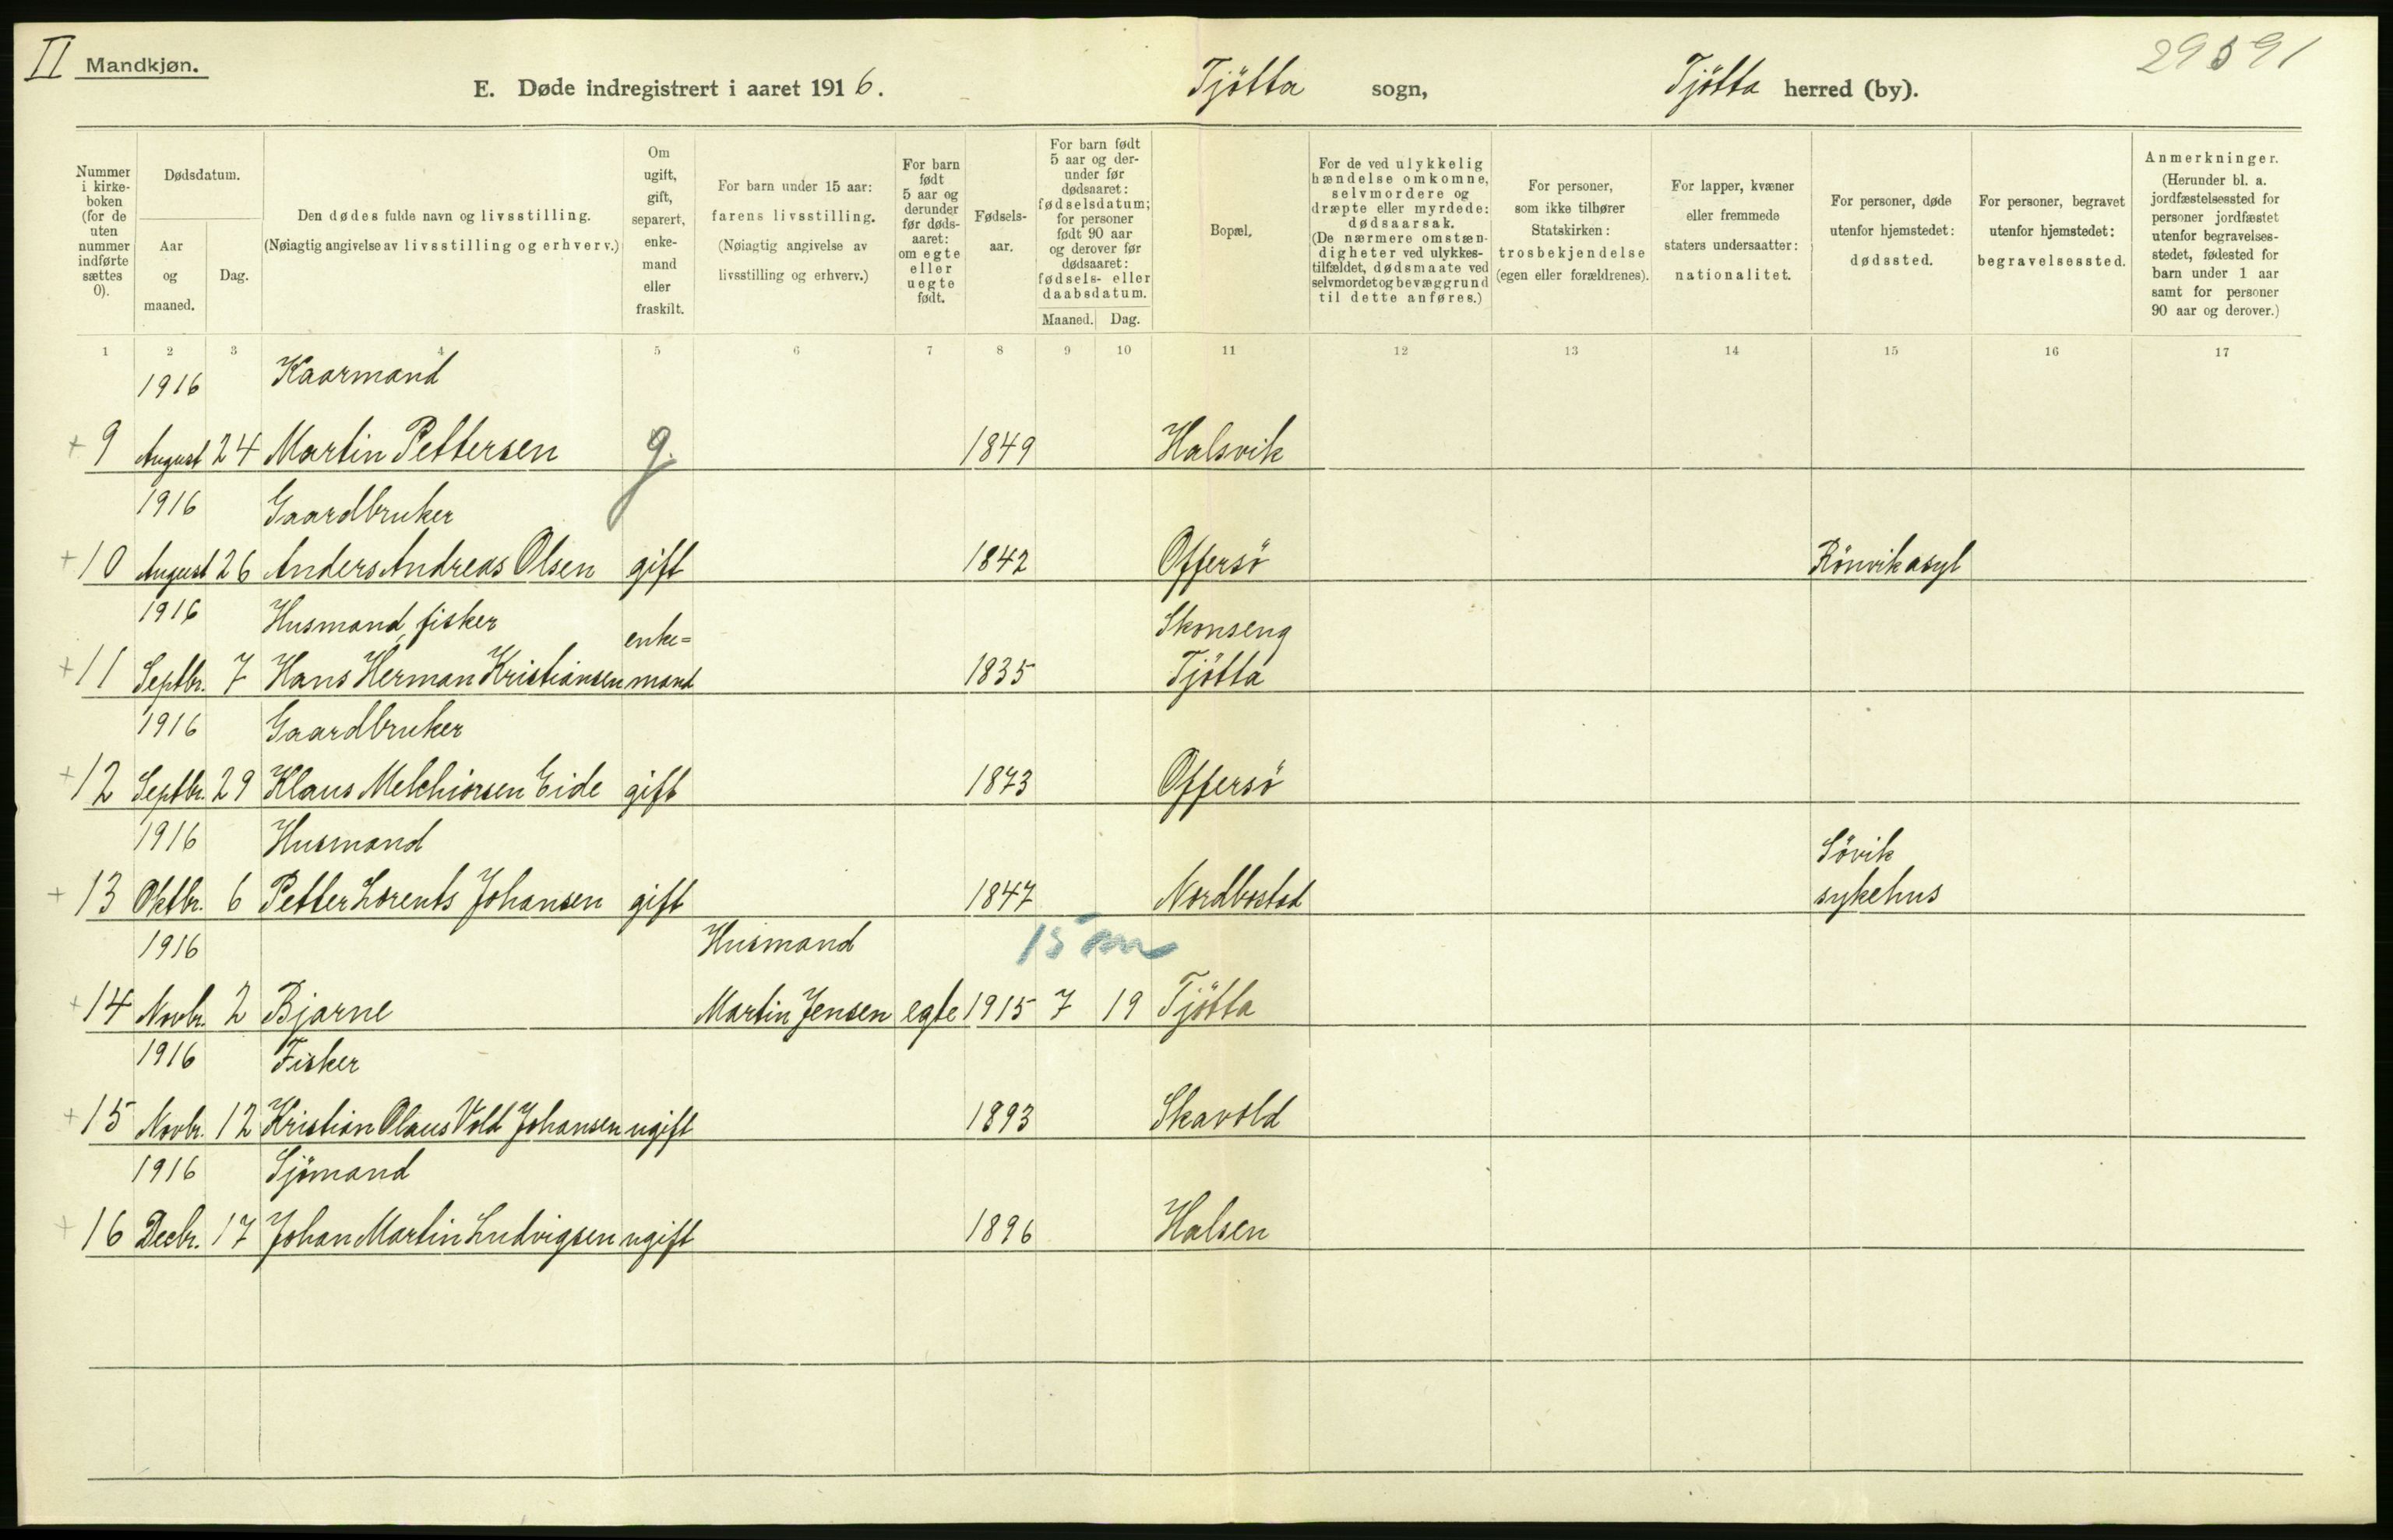 II Mandkjøn. 29591
E. Døde indregistrert i aaret 1916. Tjötta sogn, Tjötta herred (by).
Nummer i kirke-boken (for de uten nummer indførte sættes 0).
Dødsdatum.
Aar og maaned.
Dag.
Den dødes fulde navn og livsstilling.
(Nøiagtig angivelse av livsstilling og erhverv.)
Om ugift, gift, separert, enke-mand eller fraskilt.
For barn under 15 aar:
farens livsstilling.
(Nøiagtig angivelse av
livsstilling og erhverv.)
For barn født 5 aar og derunder før døds-aaret: om egte eller uegte født.
Fødsels-aar.
For barn født 5 aar og der-under før dødsaaret: fødselsdatum; for personer født 90 aar og derover før dødsaaret: fødsels- eller daabsdatum.
Maaned. Dag.
Bopæl.
For de ved ulykkelig hændelse omkomne, selvmordere og dræpte eller myrdede: dødsaarsak. (De nærmere omstæn-digheter ved ulykkes-tilfældet, dødsmaate ved selvmordet og bevæggrund til dette anføres.)
For personer, som ikke tilhører Statskirken: trosbekjendelse (egen eller forældrenes).
For lapper, kvæner eller fremmede staters undersaatter: nationalitet.
For personer, døde utenfor hjemstedet: dødssted.
For personer, begravet utenfor hjemstedet: begravelsessted.
Anmerkninger.
(Herunder bl. a. jordfæstelsessted for personer jordfæstet utenfor begravelses-stedet, fødested for barn under 1 aar samt for personer 90 aar og derover.)
1 2 3 4 5 6 7 8 9 10 11 12 13 14 15 16 17
1916 Kaarmand
+ 9 August 24 Martin Pettersen g. 1849 Halsvik
1916 Gaardbruker
+ 10 August 26 Anders Andreas Olsen gift 1842 Offersö Rönvik asyl
1916 Husmand, fisker enke= Skonseng
+ 11 Septbr. 7 Hans Herman Kristiansen mand 1835 Tjötta
1916 Gaardbruker
+ 12 Septbr. 29 Klaus Melchiorsen Eide gift 1873 Offersö
1916 Husmand Sövik
+ 13 Oktbr. 6 Petter Lorents Johansen gift 1847 Nordbostad sykehus
1916 Husmand 15 m
+ 14 Novbr. 2 Bjarne Martin Jensen egte 1915 7 19 Tjötta
1916 Fisker
+ 15 Novbr. 12 Kristian Olaus Vold Johansen ugift 1893 Skavold
1916 Sjömand
+ 16 Decbr. 17 Johan Martin Ludvigsen ugift 1896 Halsen